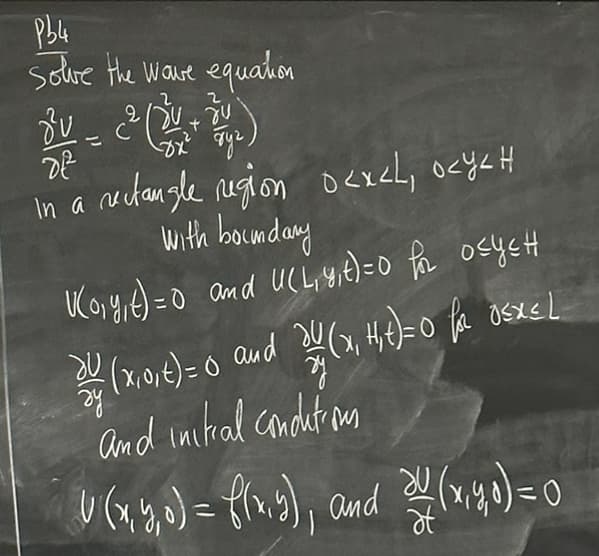 Pb4
Solve the wave equation
∂²U/∂t² = c² (∂²U/∂x² + ∂²U/∂y²)
In a rectangle region 0<x<L, 0<y<H
with boundary
U(0,y,t)=0 and U(L,y,t)=0 for 0≤y≤H
∂U/∂y (x,0,t)=0 and ∂U/∂y (x,H,t)=0 for 0≤x≤L
and initial conditions
U(x,y,0) = f(x,y), and ∂U/∂t (x,y,0)=0